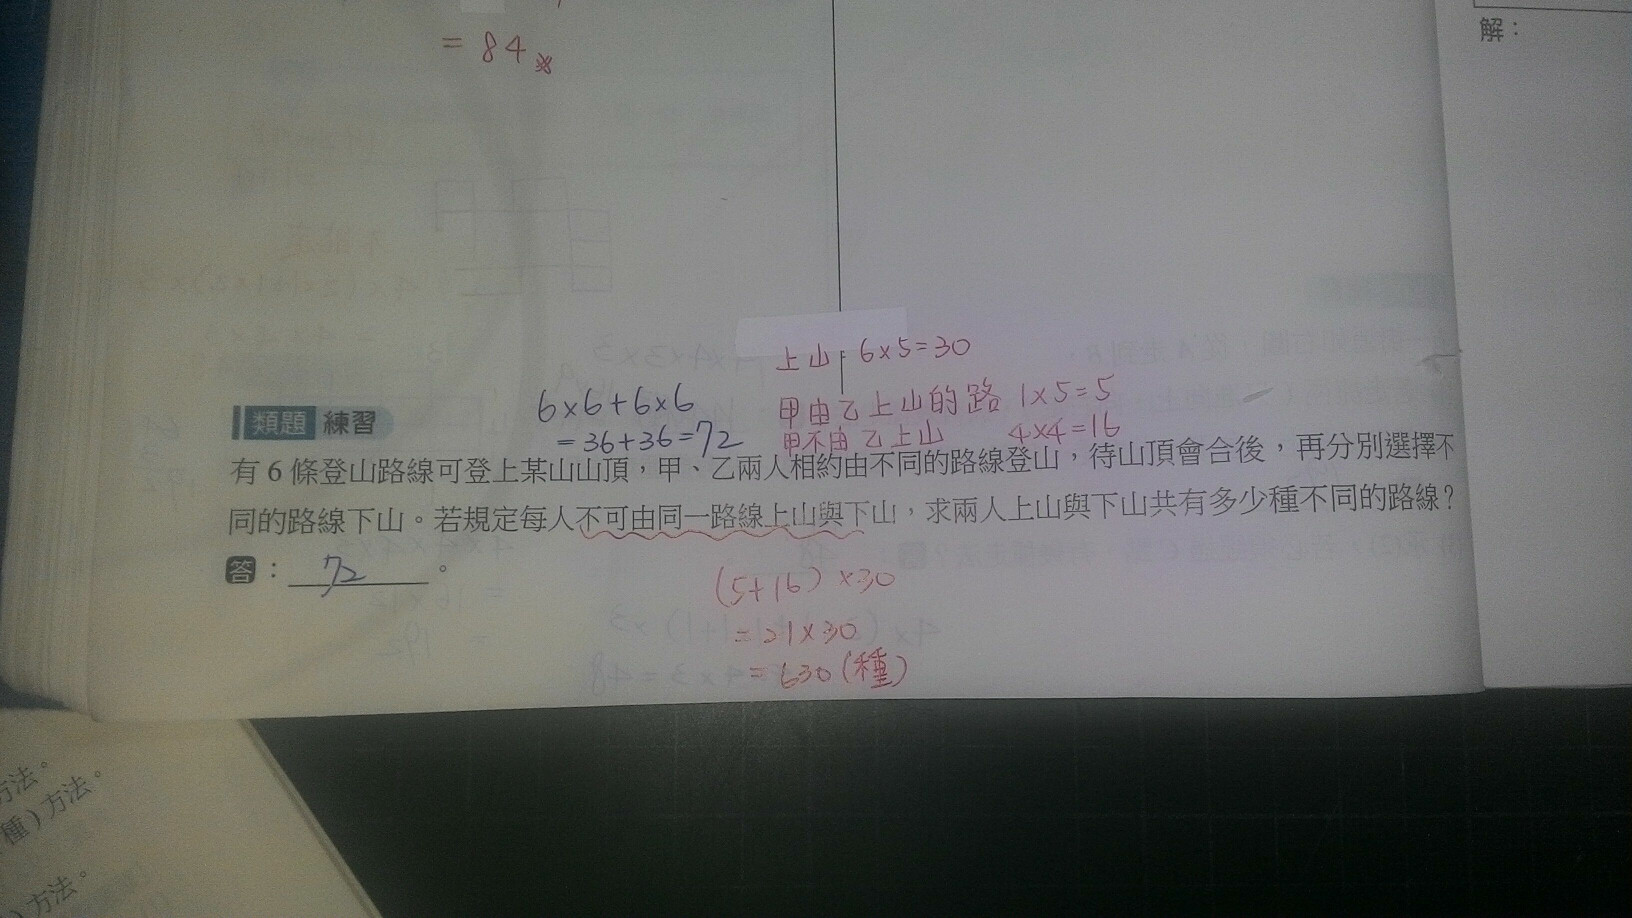 = 84
解：
上山 6×5=30
6×6+6×6
甲由乙上山的路 1×5=5
類題 練習
=36+36=72
甲不由乙上山 4×4=16
有 6 條登山路線可登上某山山頂，甲、乙兩人相約由不同的路線登山，待山頂會合後，再分別選擇不
同的路線下山。若規定每人不可由同一路線上山與下山，求兩人上山與下山共有多少種不同的路線？
答：72。
(5+16)×30
=21×30
=630(種)
方法。
種）方法。
）方法。